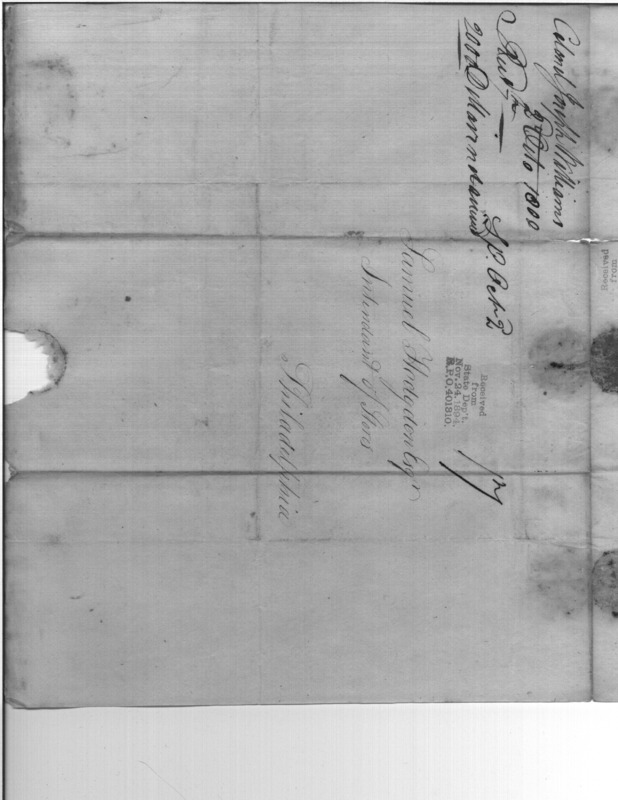 Colonel Joseph Williams
2d Octo 1800
2000 Dollars
Ap. Oct. 2
Samuel Hodgdon Esqr
Intendant of Stores
Philadelphia
Received
from
State Dep't.
Nov. 24, 1894.
R.P.O. 401810.
Received
from